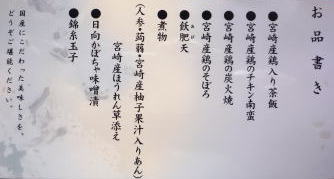 お品書き
●宮崎産鶏入り茶飯
●宮崎産鶏のチキン南蛮
●宮崎産鶏の炭火焼
●宮崎産鶏のそぼろ
●飫肥天
●煮物
(人参・蒟蒻・宮崎産柚子果汁入りあん)
宮崎産ほうれん草添え
●日向かぼちゃ味噌漬
●錦糸玉子
国産にこだわった美味しさを、
どうぞご堪能ください。